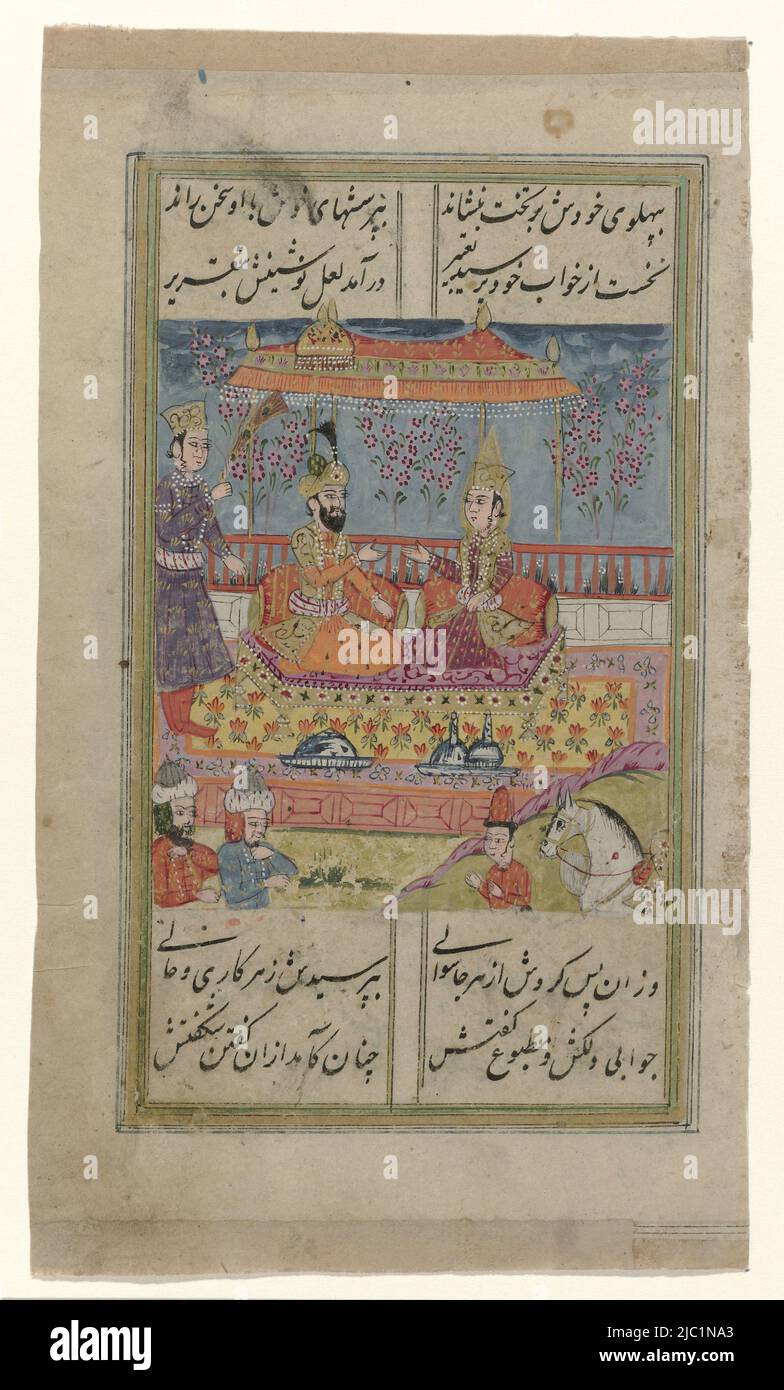 بپهلوی خودش بر تخت بنشاند بپرسشهای خوش با او سخن راند
نخست از خواب خود پرسید تعبیر درآمد لعل نوشینش بتقریر
وزان پس کردش از هر جا سوالی بپرسیدش ز هر کاری و حالی
جوابی دلکش و مطبوع گفتش چنان کآمد ازان گفتن شگفتش
alamy
Image ID: 2JC1NA3
www.alamy.com